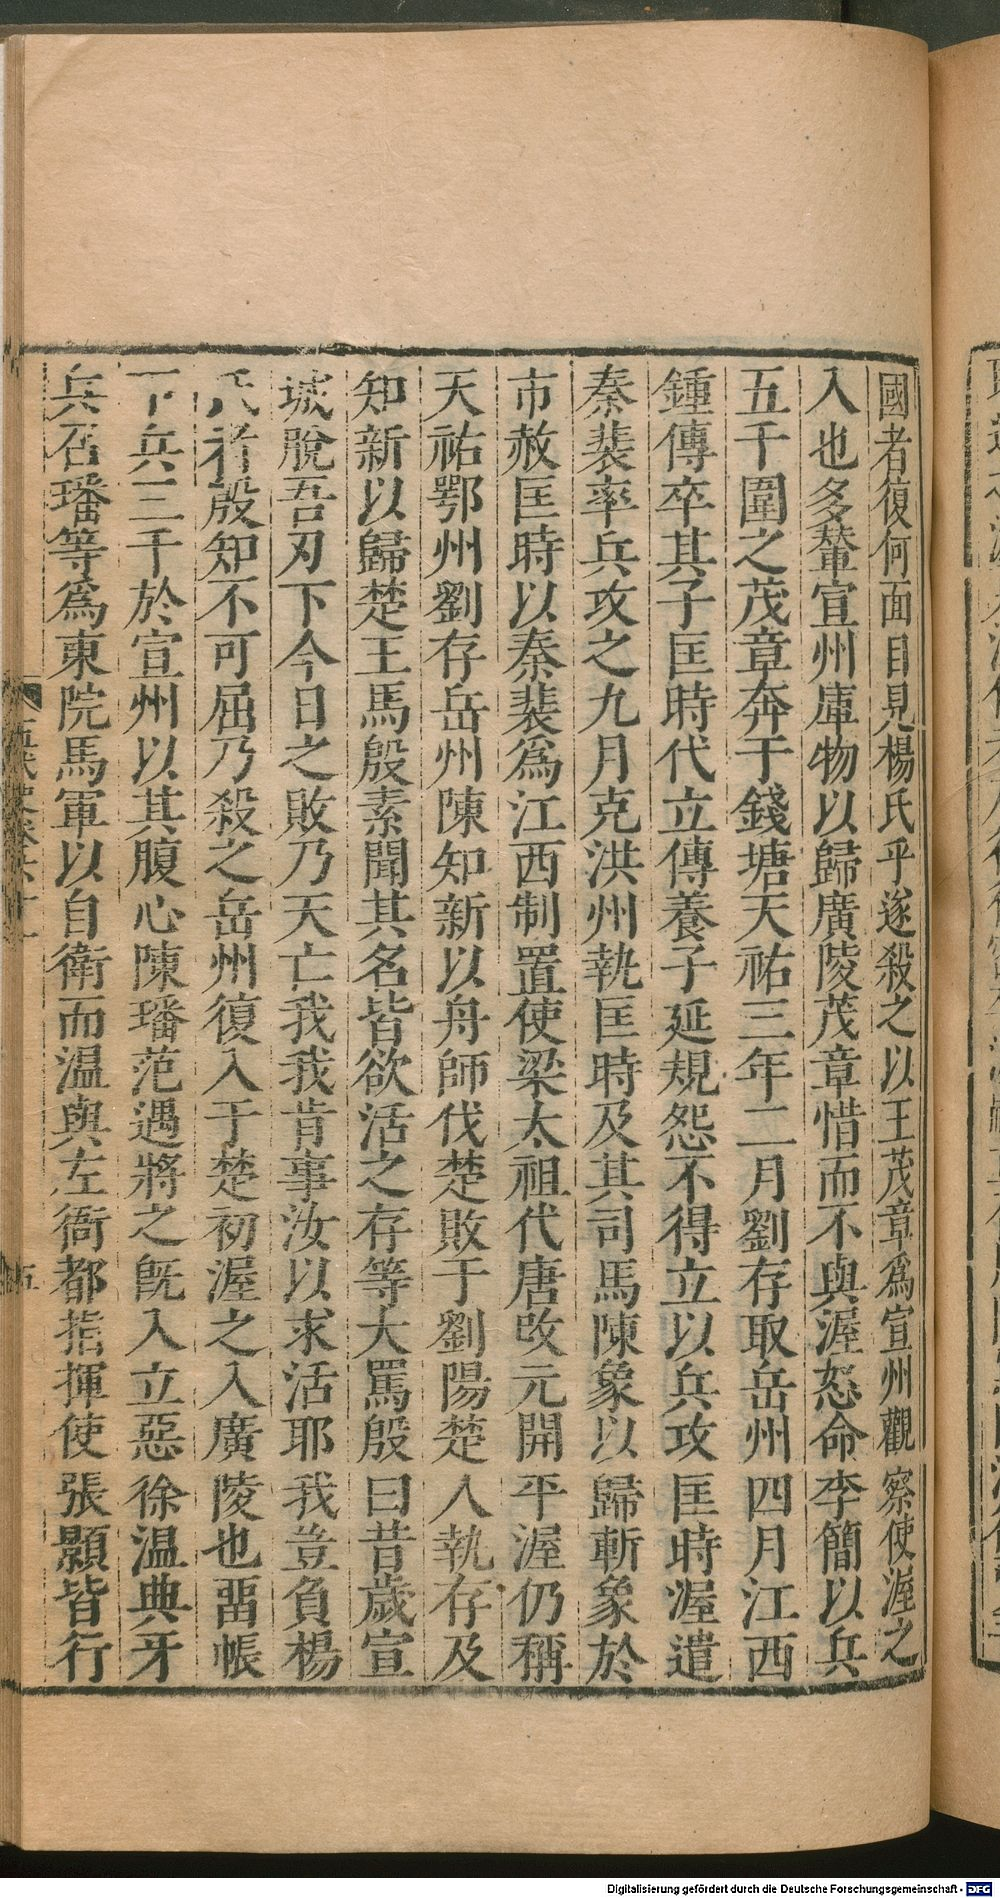 國者復何面目見楊氏乎遂殺之以王茂章爲宣州觀察使渥之
入也多輦宣州庫物以歸廣陵茂章惜而不與渥怒命李簡以兵
五千圍之茂章奔于錢塘天祐三年二月劉存取岳州四月江西
鍾傳卒其子匡時代立傳養子延規怨不得立以兵攻匡時渥遣
秦裴率兵攻之九月克洪州執匡時及其司馬陳象以歸斬象於
市赦匡時以秦裴爲江西制置使梁太祖代唐改元開平渥仍稱
天祐鄂州劉存岳州陳知新以舟師伐楚敗于劉陽楚人執存及
知新以歸楚王馬殷素聞其名皆欲活之存等大罵殷曰昔歲宣
城脫吾刃下今日之敗乃天亡我我肯事汝以求活耶我豈負楊
氏者殷知不可屈乃殺之岳州復入于楚初渥之入廣陵也畱帳
下兵三千於宣州以其腹心陳璠范遇將之旣入立惡徐温典牙
兵召璠等爲東院馬軍以自衛而温與左衙都指揮使張顥皆行
五
Digitalisierung gefördert durch die Deutsche Forschungsgemeinschaft - DFG